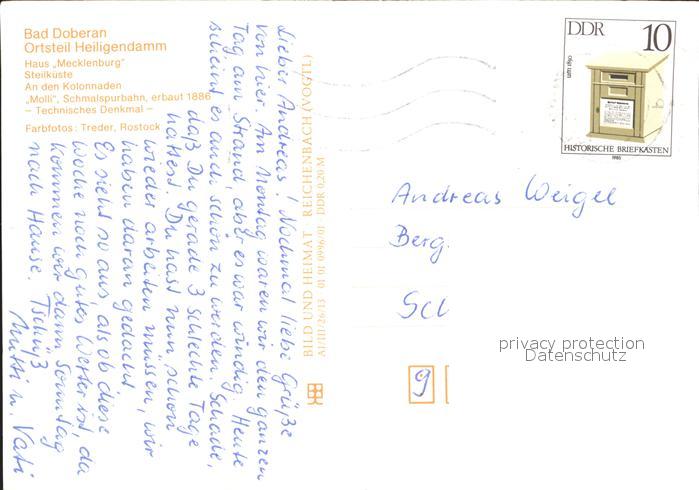 Bad Doberan
Ortsteil Heiligendamm
Haus „Mecklenburg"
Steilküste
An den Kolonnaden
„Molli", Schmalspurbahn, erbaut 1886
– Technisches Denkmal –
Farbfotos: Treder, Rostock
Lieber Andreas! Nochmal liebe Grüße
von hier. Am Montag waren wir den ganzen
Tag am Strand, aber es war windig. Heute
scheint es auch schön zu werden. Schade,
daß Du gerade 3 schlechte Tage
hattest. Du hast nun schon
wieder arbeiten müssen, wir
haben daran gedacht.
Es sieht so aus, als ob diese
Woche noch gutes Wetter ist, da
kommen wir dann Sonntag
nach Hause. Tschüß
Mutti u. Vati
BILD UND HEIMAT REICHENBACH (VOGTL)
A1/III/26/13 01 01 0996/01 DDR 0,20 M
DDR 10
um 1890
HISTORISCHE BRIEFKÄSTEN
1985
Andreas Weigel
Berg.
Scl
9
privacy protection
Datenschutz